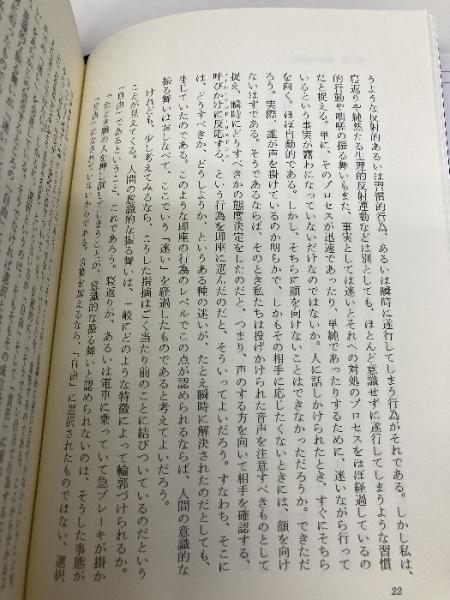 うような反射的あるいは習慣的行為、あるいは瞬時に遂行してしまう行為がそれである。しかし私は、
寝返りや純然たる生理的反射運動などは別としても、ほとんど意識せずに遂行してしまうような習慣
的行動や咄嗟の振る舞いもまた、事実としては迷いとそれへの対処のプロセスをほぼ経過しているの
だと捉える。単に、そのプロセスが迅速であったり、単純であったりするために、迷いながら行って
いるという事実が露わになっていないだけなのではないか。人に話しかけられたとき、すぐにそちら
を向く。ほぼ自動的である。しかし、そちらに顔を向けないことはできなかっただろうか。できただ
ろう。実際、誰が声を掛けているのか明らかで、しかもその相手に応じたくないときには、顔を向け
ないはずである。そうであるならば、そのとき私たちは投げかけられた音声を注意すべきものとして
捉え、瞬時にどうすべきかの態度決定をしたのだと、つまり、声のする方を向いて相手を確認する、
呼びかけに反応する、という行為を即座に選んだのだと、そういってよいだろう。すなわち、そこに
は、どうすべきか、どうしようか、というある種の迷いが、たとえ瞬時に解決されたのだとしても、
生じていたのである。このような即座の行為のレベルでこの点が認められるならば、人間の意識的な
振る舞いはおしなべて、ここでいう「迷い」を経過したものであると考えてよいだろう。
けれども、少し考えてみるなら、こうした指摘はごく当たり前のことに結びついているのだという
ことが見えてくる。人間の意識的な振る舞いは、一般にどのような特徴によって輪郭づけられるか。
「自由」であるということ、これであろう。寝返りが、あるいは電車に乗っていて急ブレーキが掛か
って隣の人を押し倒してしまうことが、意識的な振る舞いと認められないのは、そうした事態が
「自由」になされていないからである。言葉を換えるなら、「自由」に選択されたものではない、選択
22